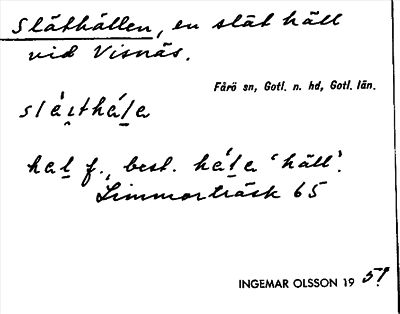 Släthällen, en slät häll
vid Visnäs.
Fårö sn, Gotl. n. hd, Gotl. län.
hal f., best. hála ‘häll’.
Limmorträsk 65
INGEMAR OLSSON 19 59